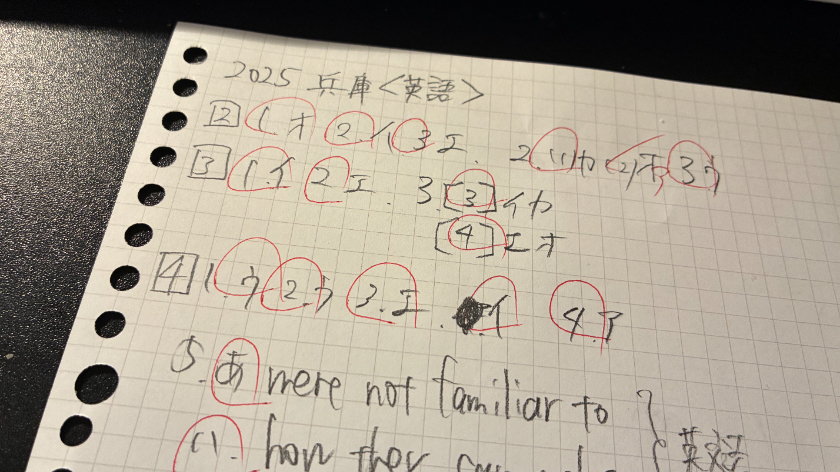 2025 兵庫<英語>
2 1 オ 2 イ 3 エ. 2 (1) カ (2) オ 3 ウ
3 1 イ 2 エ. 3.[3] イカ
[4] エオ
4 1.ウ 2.ウ 3.エ. イ 4.ア
5.あ were not familiar to
(1). how they